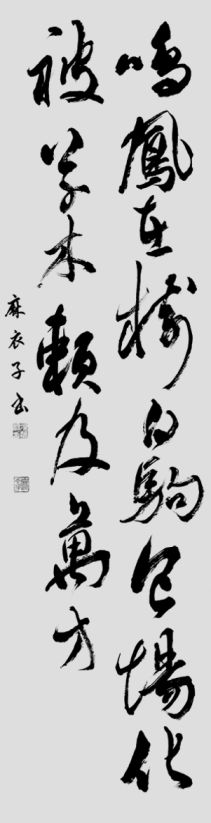 鳴鳳在樹白駒食場化
被草木賴及萬方
麻衣子書